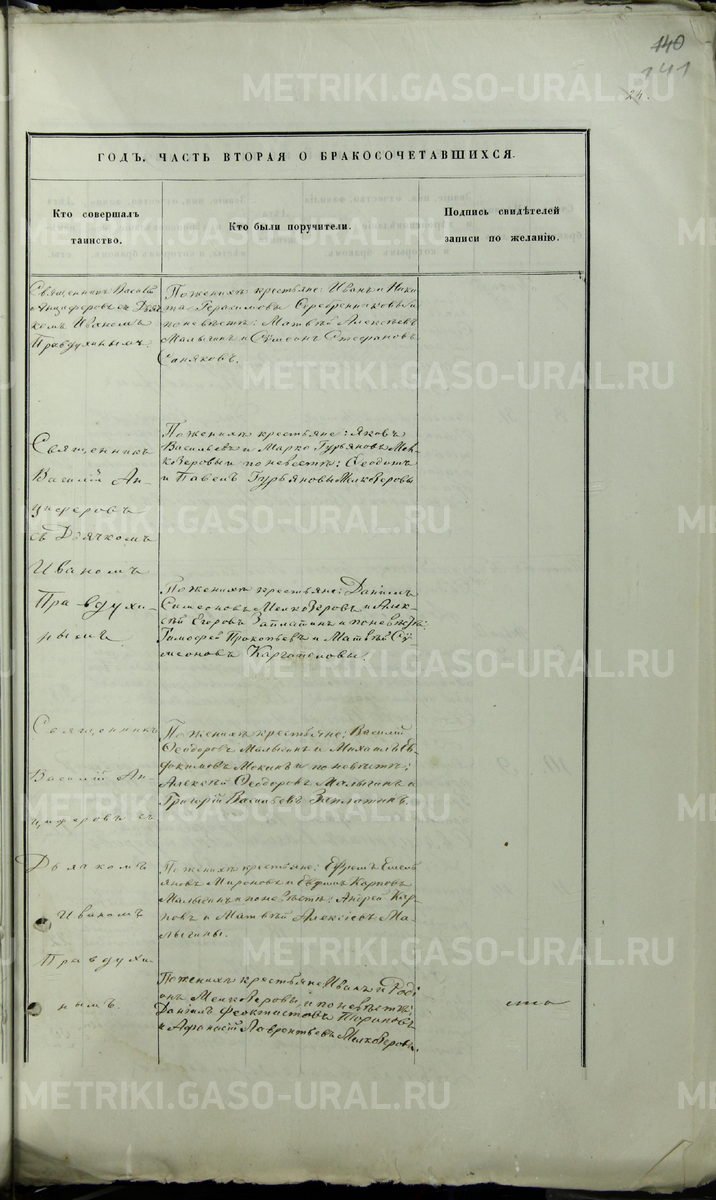 140
141
24.
ГОДЪ, ЧАСТЬ ВТОРАЯ О БРАКОСОЧЕТАВШИХСЯ.
Кто совершалъ
таинство.
Кто были поручители.
Подпись свидѣтелей
записи по желанію.
Священникъ Василій
Анциферовъ съ Дьяч
комъ Иваномъ
Правдухинымъ.
По женихѣ крестьяне: Иванъ и Ники
та Герасимовы Серебренниковы и
по невѣстѣ: Матвѣй Алексѣевъ
Малыгинъ и Сѵмеонъ Стефановъ
Саняковъ.
Священникъ
Василій Ан-
циферовъ
съ Дьячкомъ
Иваномъ
Правдухи-
нымъ.
По женихѣ крестьяне: Яковъ
Васильевъ и Марко Гурьяновъ Мел-
козеровы и по невѣстѣ: Ѳеодотъ
и Павелъ Гурьяновы Мелкозеровы
По женихѣ крестьяне: Даніилъ
Симеоновъ Мелкозеровъ и Алек-
сѣй Егоровъ Заплатинъ и по невѣстѣ:
Тимофей Прокопьевъ и Матвѣй Сѵ-
меоновъ Каргополовы.
Священникъ
Василій Ан-
циферовъ съ
Дьячкомъ
Иваномъ
Правдухи-
нымъ.
По женихѣ крестьяне: Василій
Ѳеодоровъ Малыгинъ и Михаилъ Ев-
докимовъ Мокинъ и по невѣстѣ:
Алексѣй Ѳеодоровъ Малыгинъ и
Григорій Васильевъ Заплатинъ.
По женихѣ крестьяне: Ефремъ Емель
яновъ Мироновъ и Евфимъ Карповъ
Малыгинъ и по невѣстѣ: Андрей Кар-
повъ и Матвѣй Алексѣевъ Ма-
лыгины.
По женихѣ крестьяне Иванъ и Роді
онъ Мелкозеровы, и по невѣстѣ:
Даніилъ Феоктистовъ
и Афанасій Лаврентьевъ Мелкозеровъ.
METRIKI.GASO-URAL.RU